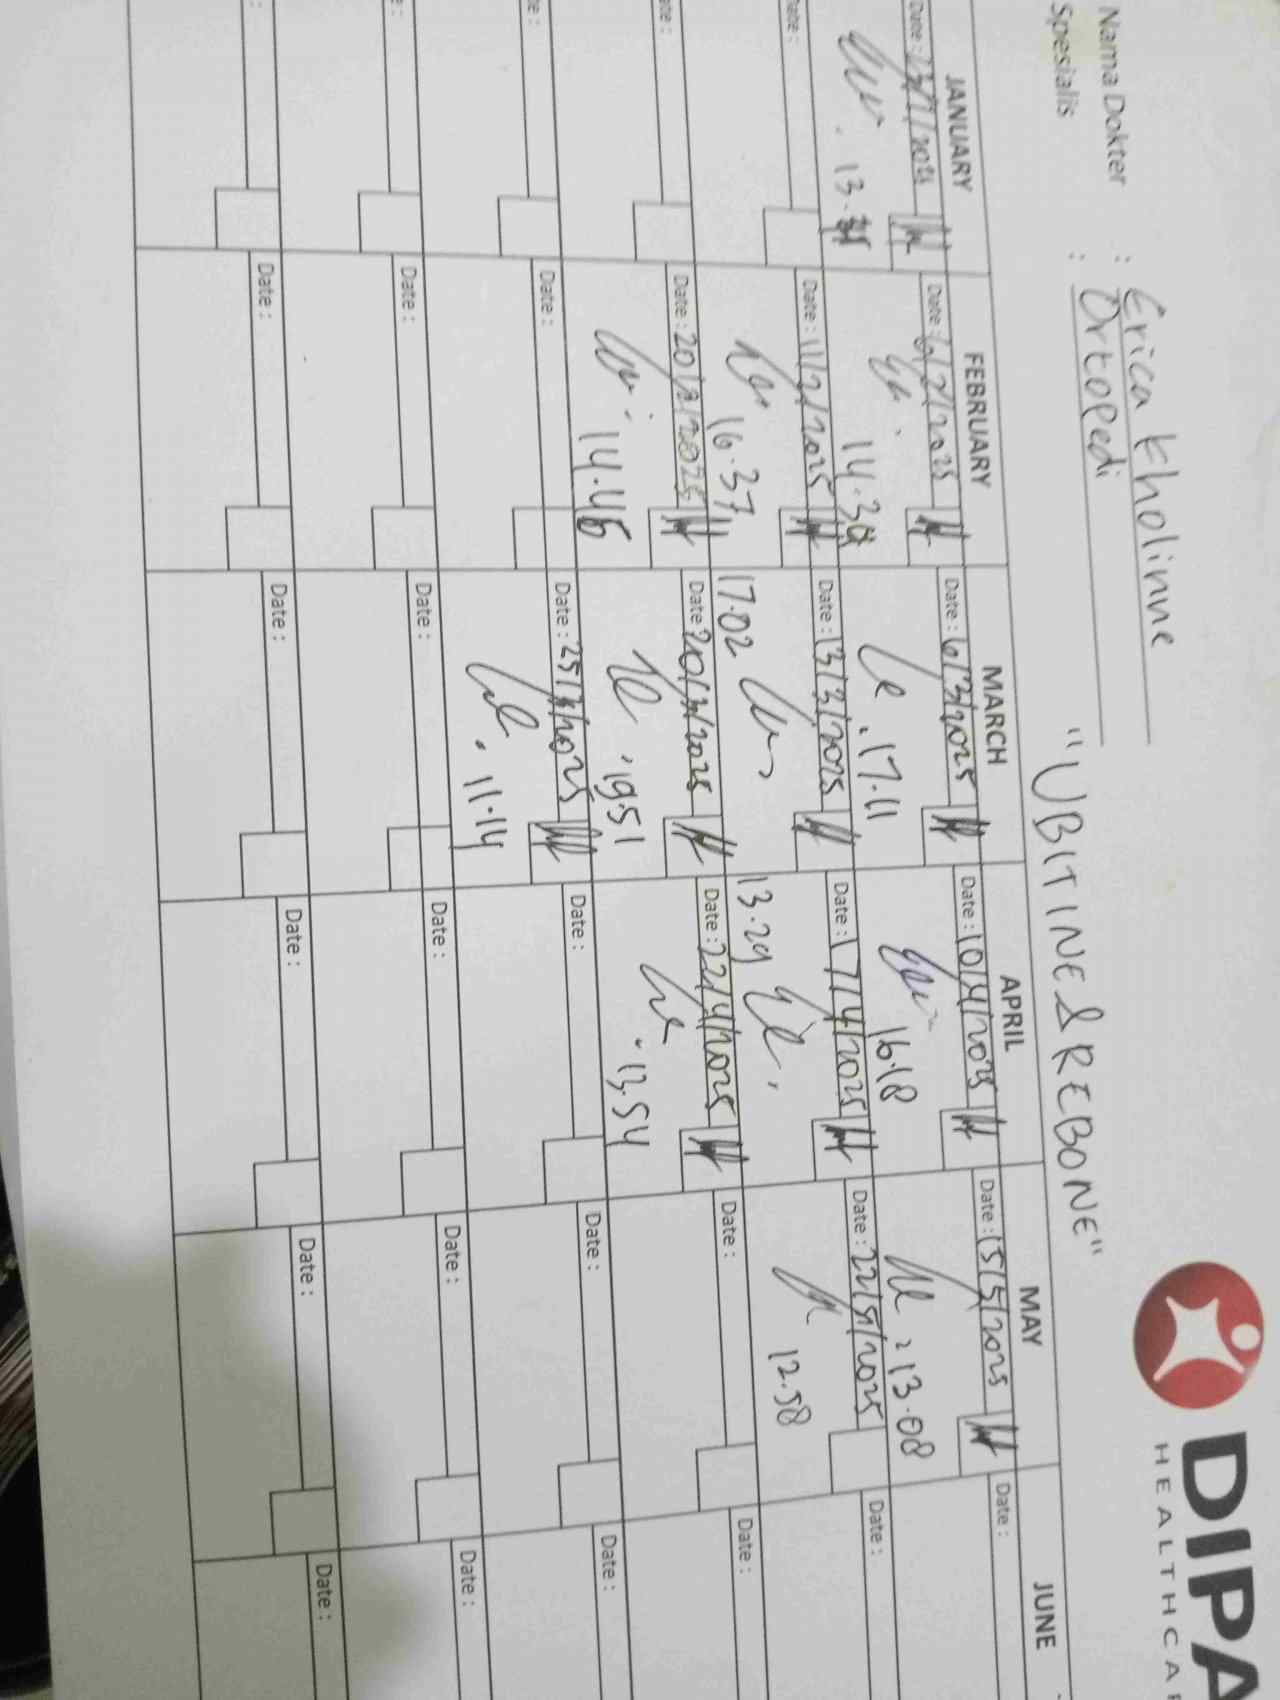 DIPA
HEALTHCAR
Nama Dokter : Erica Kholinne
Spesialis : Ortopedi
"UBITINE & REBONE"
JANUARY FEBRUARY MARCH APRIL MAY JUNE
Date : 13/1/2025 Date : 6/2/2025 Date : 6/3/2025 Date : 10/4/2025 Date : 15/5/2025 Date :
14.30 17.11 16.18 13.08
Date : Date : 11/2/2025 Date : 13/3/2025 Date : 17/4/2025 Date : 22/5/2025 Date :
16.37 17.02 13.29 12.58
Date : Date : 20/2/2025 Date : 20/3/2025 Date : 22/4/2025 Date : Date :
14.45 19.51 13.54
Date : Date : Date : 25/3/2025 Date : Date : Date :
11.14
Date : Date : Date : Date : Date :
Date : Date : Date : Date : Date :